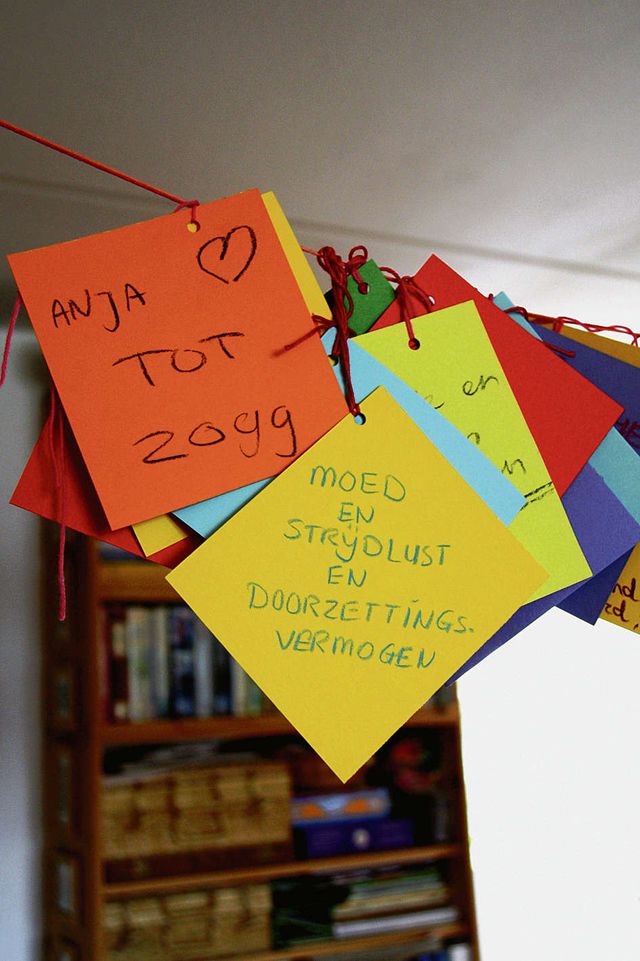 ANJA
TOT
2099
MOED
EN
STRIJDLUST
EN
DOORZETTINGS-
VERMOGEN
en